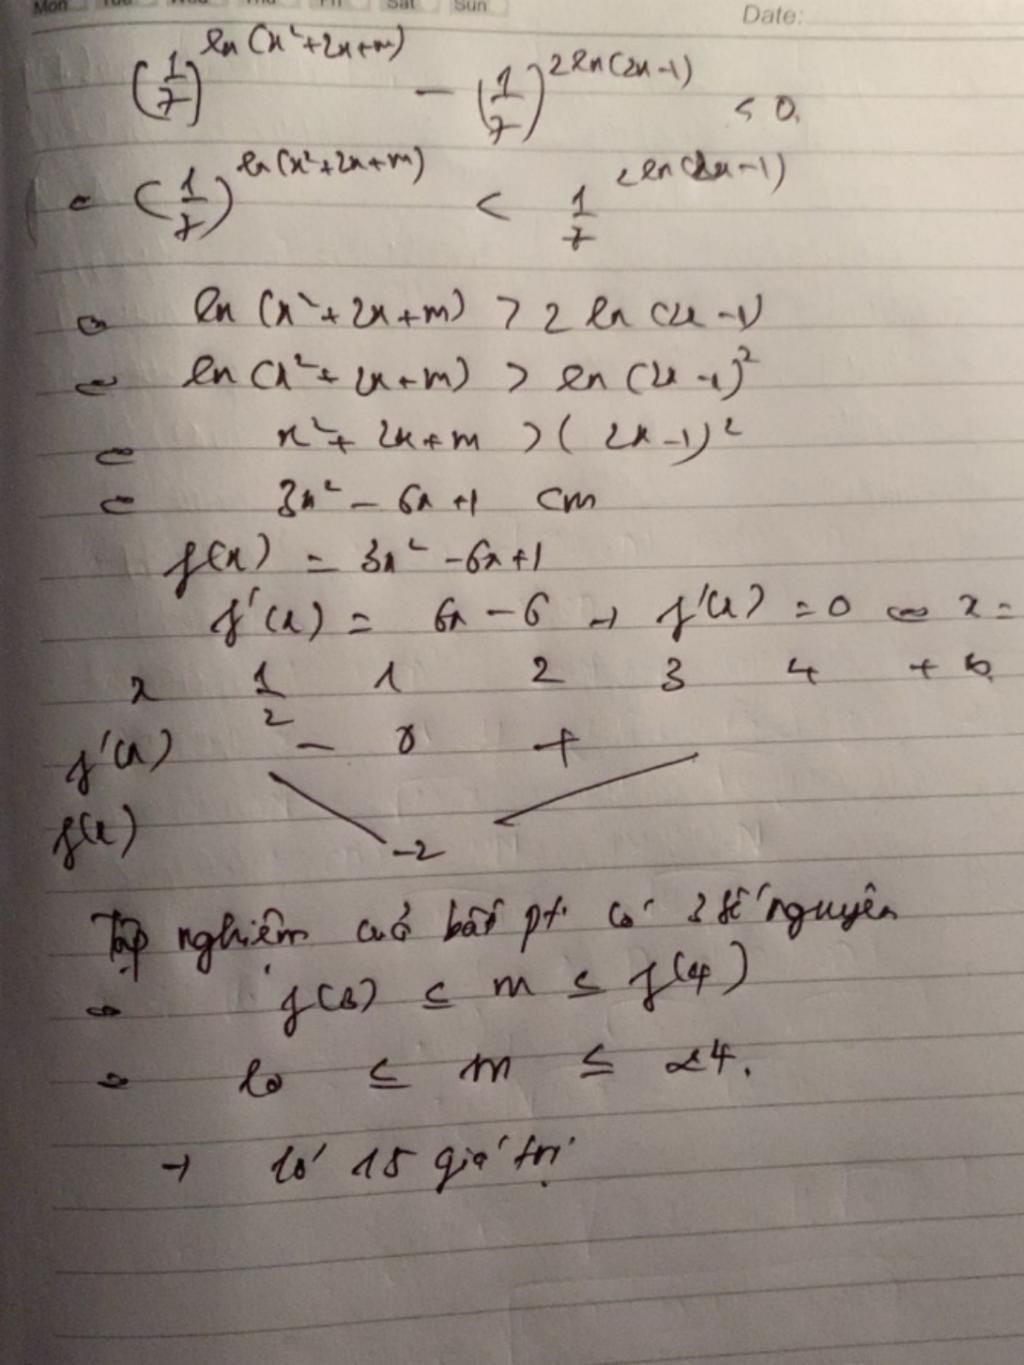 Mon Tue Wed Thu Fri Sat Sun
Date:
(1/7)^ln(x²+2x+m) - (1/7)^2ln(2x-1) < 0.
⇔ (1/7)^ln(x²+2x+m) < 1/7^2ln(2x-1)
⇔ ln(x²+2x+m) > 2ln(2x-1)
⇔ ln(x²+2x+m) > ln(2x-1)²
⇔ x²+2x+m > (2x-1)²
⇔ 3x²-6x+1 < m
f(x) = 3x²-6x+1
f'(x) = 6x-6 → f'(x) = 0 ⇔ x =
x 1/2 1 2 3 4 +∞
f'(x) - 0 +
f(x) -2
Tập nghiệm của bất pt có 3 số nguyên
⇔ f(3) ≤ m ≤ f(4)
⇔ 10 ≤ m ≤ 24.
→ có 15 giá trị